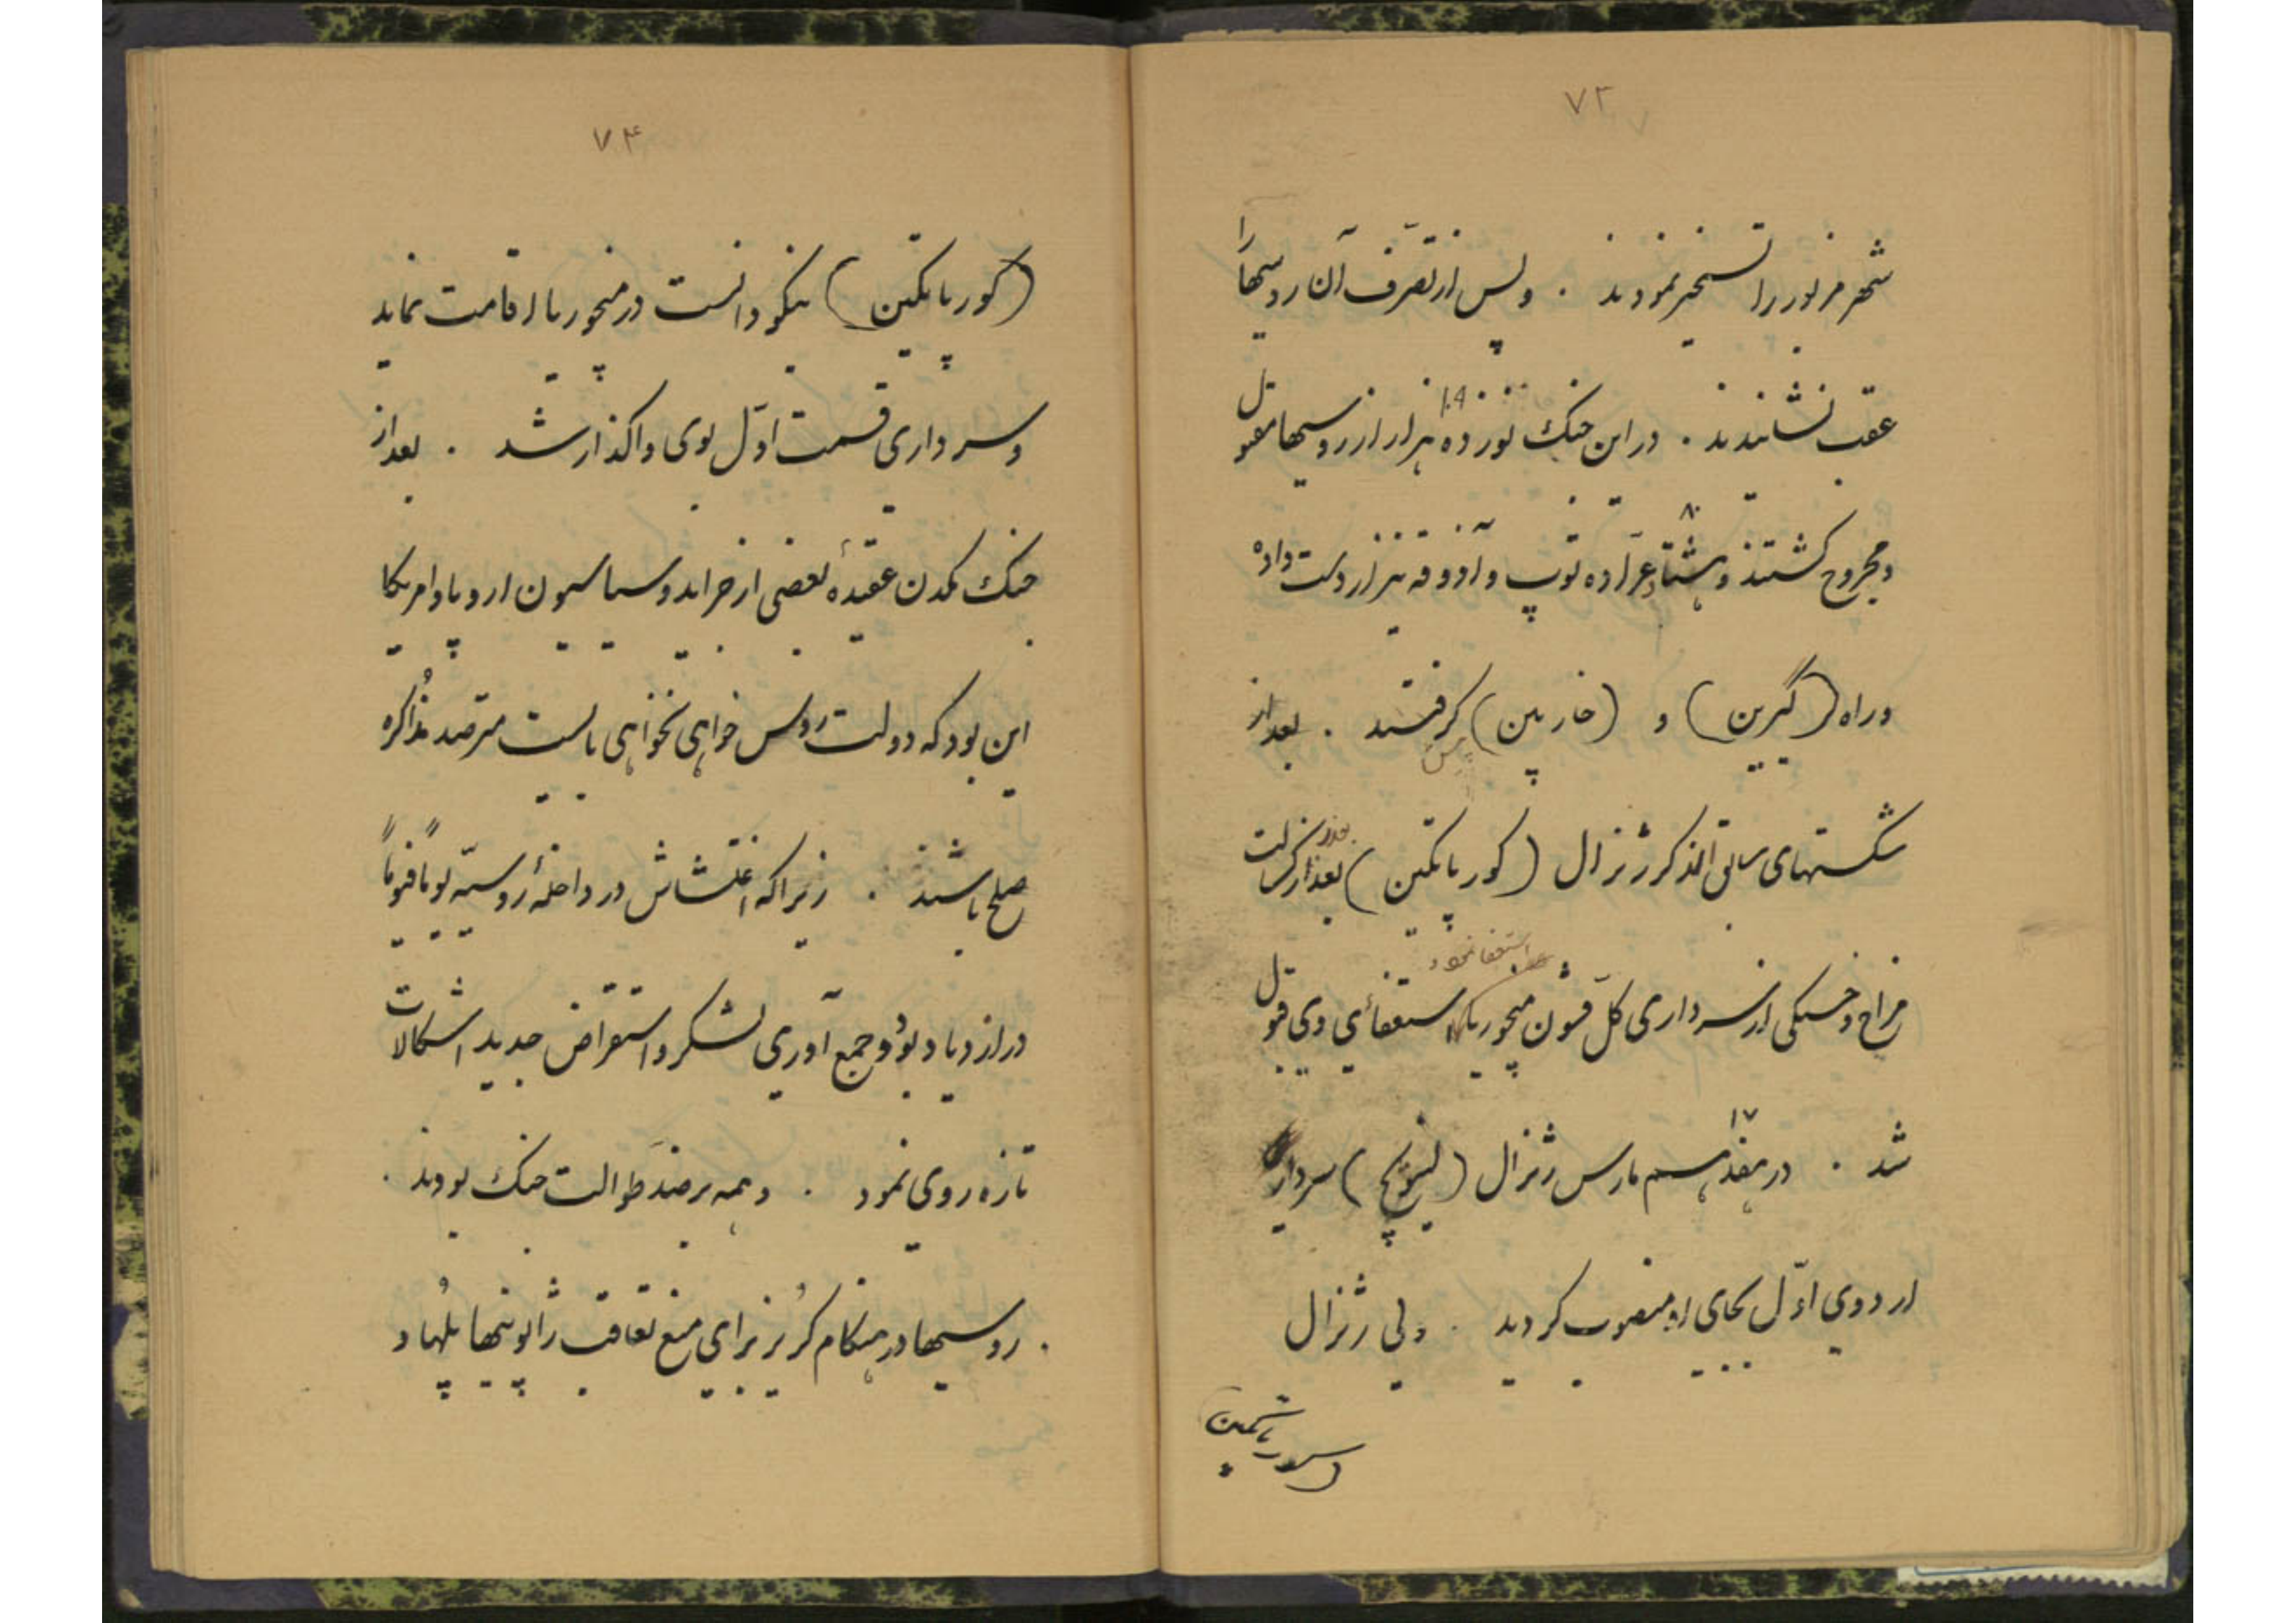 ۷۳
شهر مزبور را تسخیر نمودند . و پس از تصرّف آن روسیها را
عقب نشانیدند . در این جنک نوزده هزار از روسیها مقتول
۱۹
و مجروح کشتند و هشتاد عرّاده توپ و آذوقه نیز از دست داده
۸۰
و راه (گیرین) و (خاربین) کرفتند . بعد از
شکستهای سابق الذکر ژنرال (کورپاتکین) بعذر کسالت
مزاج و خستکی از سرداری کلّ قشون منچوریا استعفای وی قبول
استعفا نمود
شد . در هفدهم مارس ژنرال (لینویچ) سردار
۱۷
اردوی اوّل بجای او منصوب کردید . ولی ژنرال
۷۴
(کورپاتکین) نیکو دانست در منچوریا اقامت نماید
و سرداری قسمت اوّل بوی واکذار شد . بعد از
جنک مکدن عقیدهٔ بعضی از جراید و سیاسیون اروپا و امریکا
این بود که دولت روس خواهی نخواهی بایست مترصد مذاکره
صلح باشند . زیرا که اغتشاش در داخلهٔ روسیّه یوماً فیوماً
در ازدیاد بود و جمع آوری لشکر و استقراض جدید اشکالات
تازه روی نمود . و همه بر ضد طوالت جنک بودند .
. روسیها در هنکام کریز برای منع تعاقب ژاپونیها پلها و